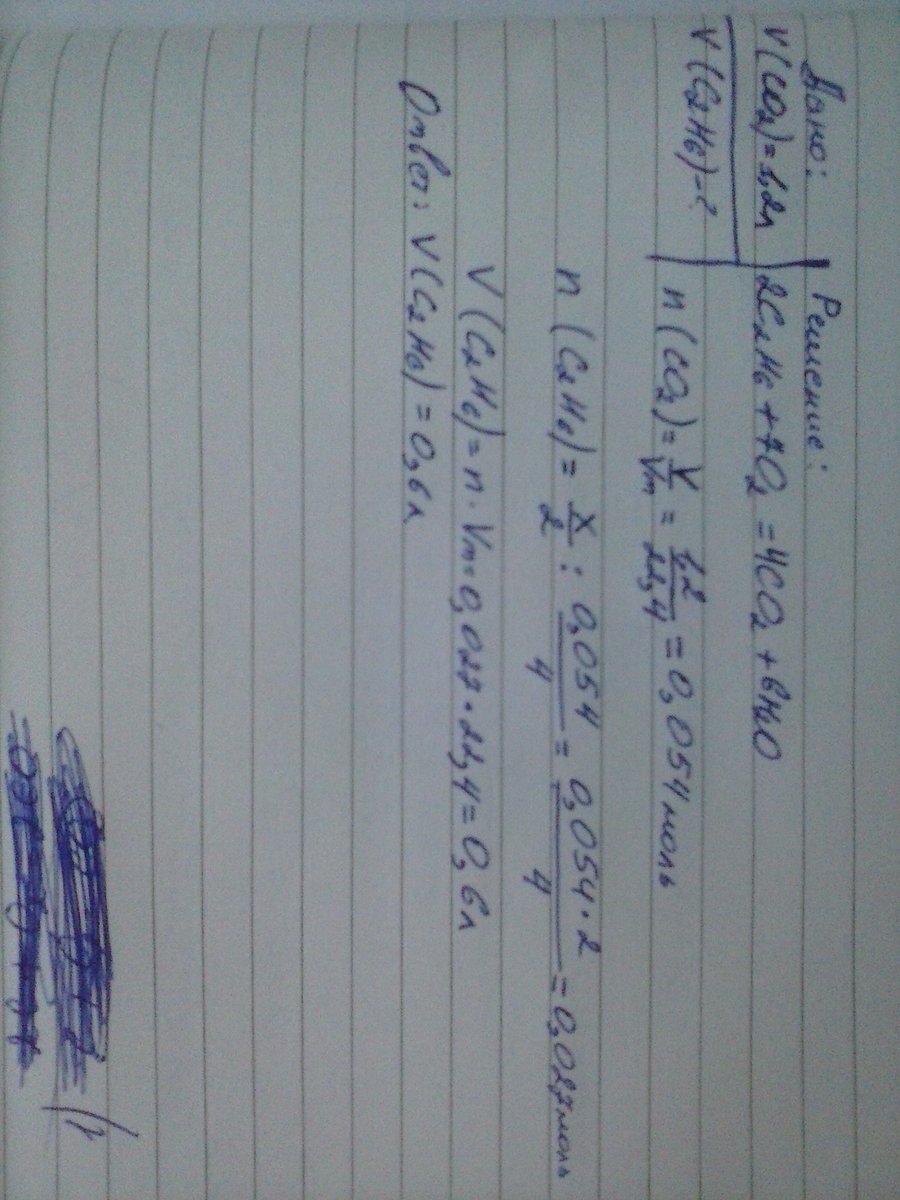 Дано:
V(CO2)=1,2л
V(C2H6)-?
Решение:
2C2H6+7O2=4CO2+6H2O
n(CO2)=V/Vm=1,2/22,4=0,054моль
n(C2H6)=X/2:0,054/4=0,054·2/4=0,027моль
V(C2H6)=n·Vm=0,027·22,4=0,6л
Ответ: V(C2H6)=0,6л